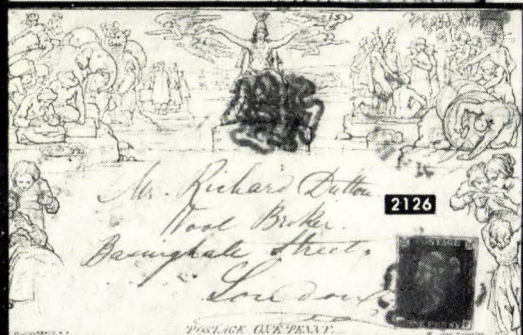 Mr. Richard Dutton
2126
Wool Broker.
Basinghall Street,
London
POSTAGE
POSTAGE ONE PENNY.